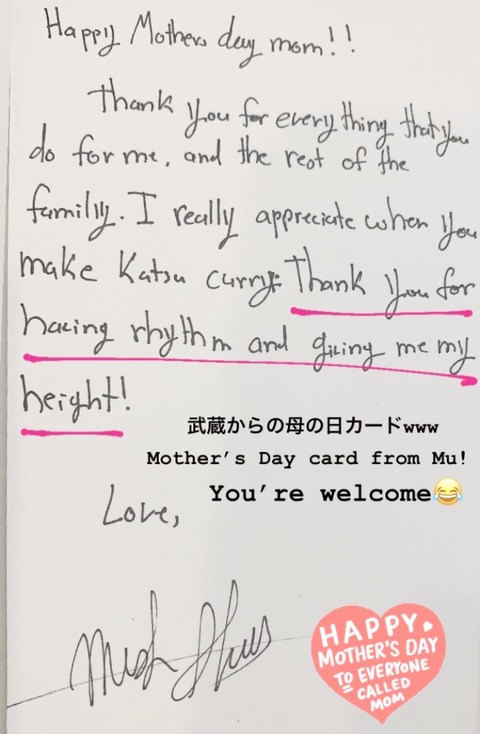 Happy Mothers day mom!!
Thank you for everything that you
do for me, and the rest of the
familily. I really appreciate when you
make Katsu curry. Thank you for
having rhythm and giving me my
height!
武蔵からの母の日カードwww
Mother's Day card from Mu!
You're welcome😂
Love,
HAPPY
MOTHER'S DAY
TO EVERYONE
CALLED
MOM